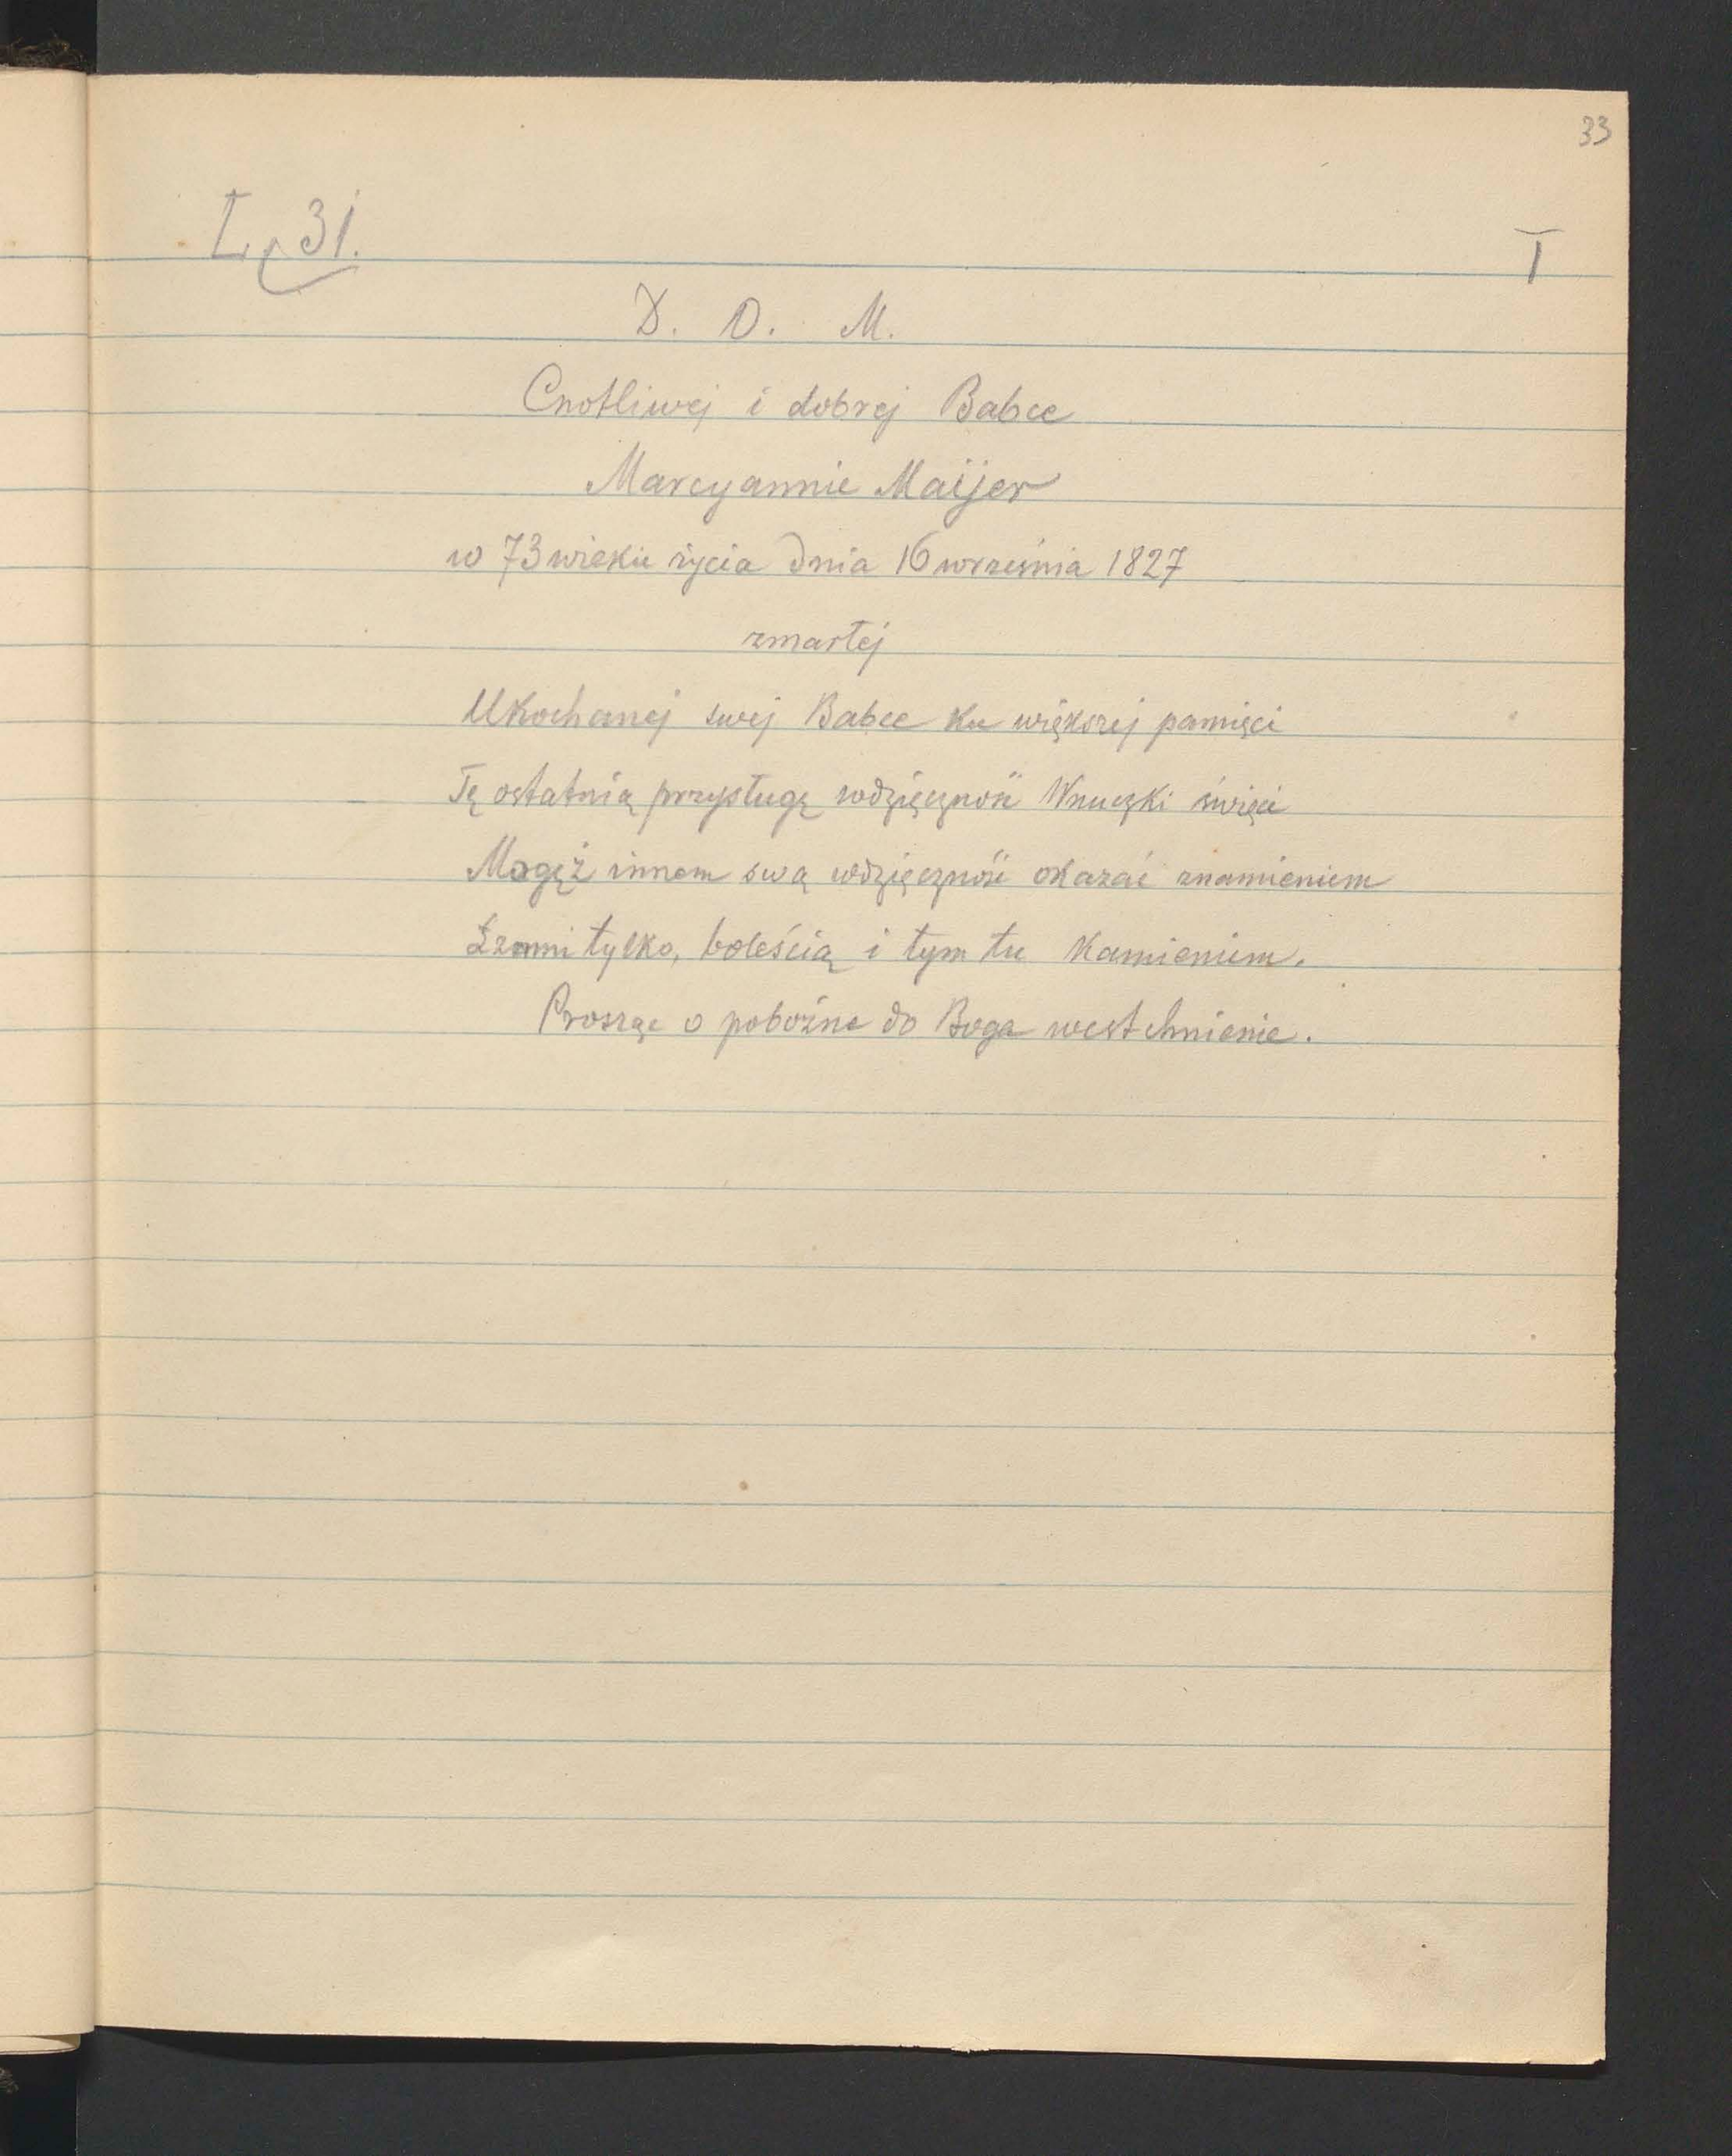 33
L. p 31.
I
D. O. M.
Cnotliwej i dobrej Babce
Marcyannie Maijer
w 73 wieku życia dnia 16 września 1827
zmarłej
Ukochanej swej Babce ku większej pamięci
Tę ostatnią przysługę wdzięczność Wnuczki święci
Mogęż innem swą wdzięczność okazać znamieniem
Łzami tylko, boleścią i tym tu kamieniem.
Proszęc o pobożne do Boga westchnienie.